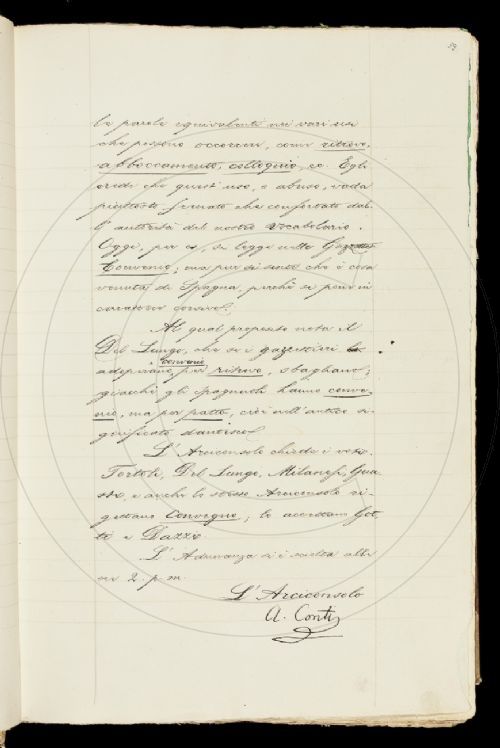 59
le parole equivalenti nei vari usi
che possono occorrere, come ritrovo,
abboccamento, colloquio, ec. Egli
crede che quest'uso, o abuso, vada
piuttosto frenato che confortato dal-
l'autorità del nostro Vocabolario.
Oggi, per es., si legge nelle Gazzette
Convenio; ma pur si sente che è cosa
venuta di Spagna, perchè si pone in
carattere corsivo.
Al qual proposito nota il
Del Lungo, che se i gazzettieri
adoperano convenio per ritrovo, sbagliano;
giacchè gli spagnuoli hanno conve-
nio, ma per patto, cioè nell'antico si-
gnificato dantesco.
L'Arciconsolo chiede i voti.
Tortoli, Del Lungo, Milanesi, Gua-
sti, e anche lo stesso Arciconsolo ri-
gettano Convegno; lo accettano Got-
ti e Dazzi.
L'Adunanza si è sciolta alle
ore 2. p. m.
L'Arciconsolo
A. Conti